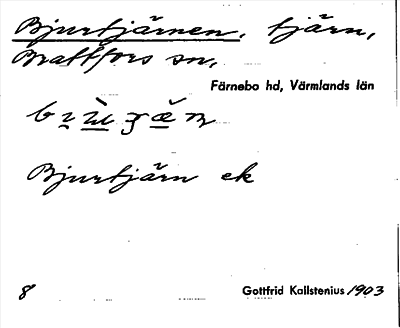 Bjurtjärnen, tjärn,
Brattfors sn,
Färnebo hd, Värmlands län
Bjurtjärn ek
8 Gottfrid Kallstenius 1903